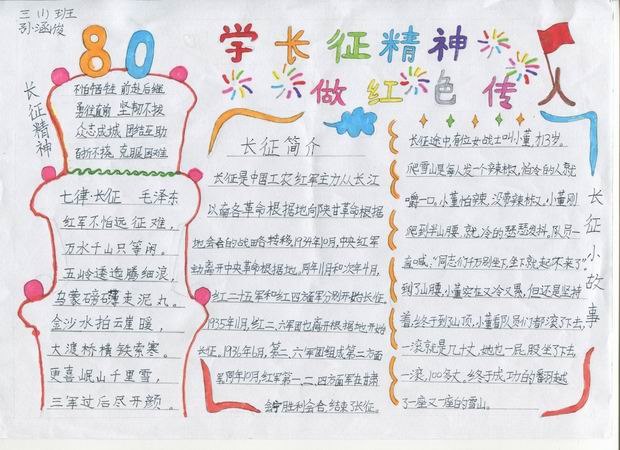 三(1)班
孙涵俊
80
学长征精神
做红色传人
长征精神
不怕牺牲 前赴后继
勇往直前 坚韧不拔
众志成城 团结互助
百折不挠 克服困难
七律·长征 毛泽东
红军不怕远征难，
万水千山只等闲。
五岭逶迤腾细浪，
乌蒙磅礴走泥丸。
金沙水拍云崖暖，
大渡桥横铁索寒。
更喜岷山千里雪，
三军过后尽开颜。
长征简介
长征是中国工农红军主力从长江
以南各革命根据地向陕甘革命根据
地会者的战田各转移,1934年10月,中央红军
动离开中央革命根据地。同年11月和次年4月,
红二十五军和红四方面军分别开始长征。
1935年11月,红二、六军团也离开根据地开始
长征。1936年6月,第二、六军团组成第二方面
军,同年10月,红军第一、二、四方面军在甘肃
会宁胜利会合,结束了长征。
长征小故事
长征途中有位女战士叫小董,力3岁。
爬雪山是每人发一个辣椒,怕冷的人就
嚼一口。小董怕辣,没带辣椒。小董刚
爬到半山腰,就冷的瑟瑟发抖。队员一
直喊:"同志们千万别坐下,坐下就起不来了"。
到了山腰,小董实在又冷又累,但还是坚持
着,终于到了山顶,小董看队员们都滚了下去,
一滚就是几十丈,她也一屁股坐了下去,
一滚,100多丈。终于成功的翻越
了一座又一座的雪山。